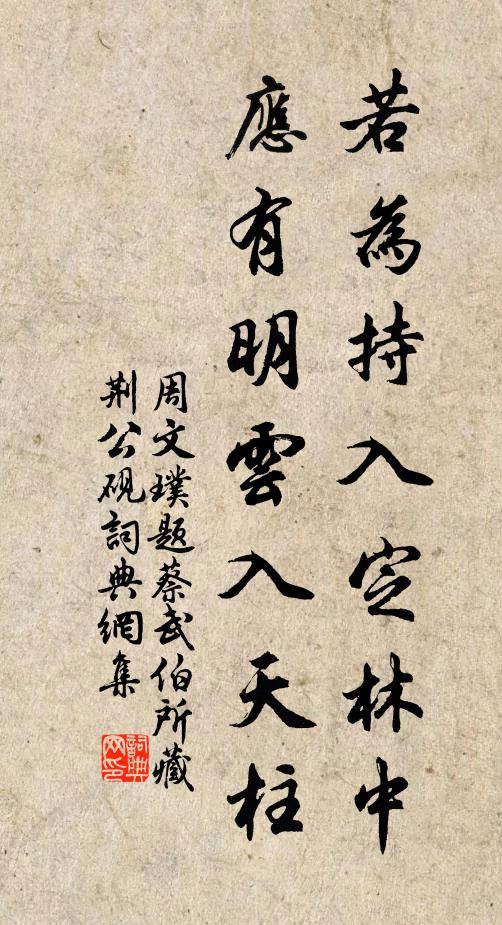 若為持入定林中
應有明雲入天柱
周文璞题蔡武伯所藏
荆公硯詞典網集
詞典网印